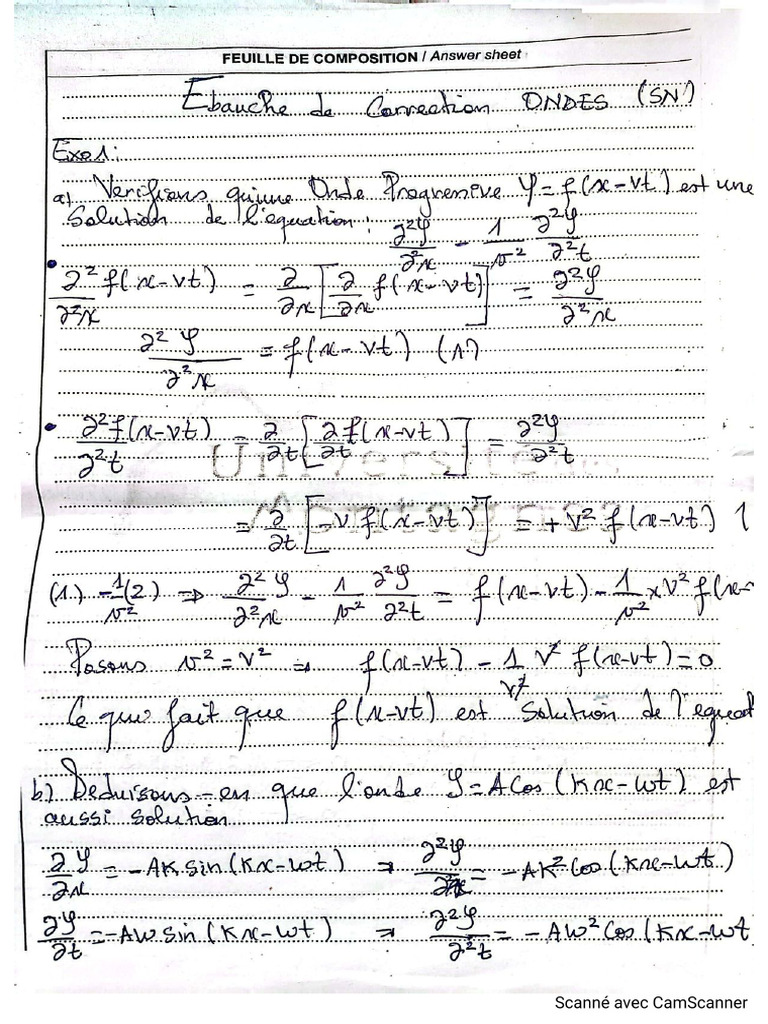 FEUILLE DE COMPOSITION / Answer sheet
Ebauche de Correction ONDES (SN)
Exo1:
a) Verifions qu'une Onde Progressive φ = f(x-vt) est une
Solution de l'equation: ∂²φ/∂²x - 1/v² ∂²φ/∂²t
• ∂²/∂²x f(x-vt) = ∂/∂x [∂/∂x f(x-vt)] = ∂²φ/∂²x
∂²φ/∂²x = f(x-vt) (1)
• ∂²f(x-vt)/∂²t = ∂/∂t [∂/∂t f(x-vt)] = ∂²φ/∂²t
= ∂/∂t [-v f(x-vt)] = + v² f(x-vt)
(1) - 1/v² (2) ⇒ ∂²φ/∂²x - 1/v² ∂²φ/∂²t = f(x-vt) - 1/v² x v² f(x-
Posons v² = V² ⇒ f(x-vt) - 1/v² v² f(x-vt) = 0
Ce qui fait que f(x-vt) est Solution de l'equat
b) Deduisons-en que l'onde φ = A Cos (Kx-wt) est
aussi solution
∂φ/∂x = -AK sin (Kx-wt) ⇒ ∂²φ/∂²x = -AK² Cos (Kx-wt)
∂φ/∂t = -AW sin (Kx-wt) ⇒ ∂²φ/∂²t = -AW² Cos (Kx-wt
Université des
Montagnes
Scanné avec CamScanner